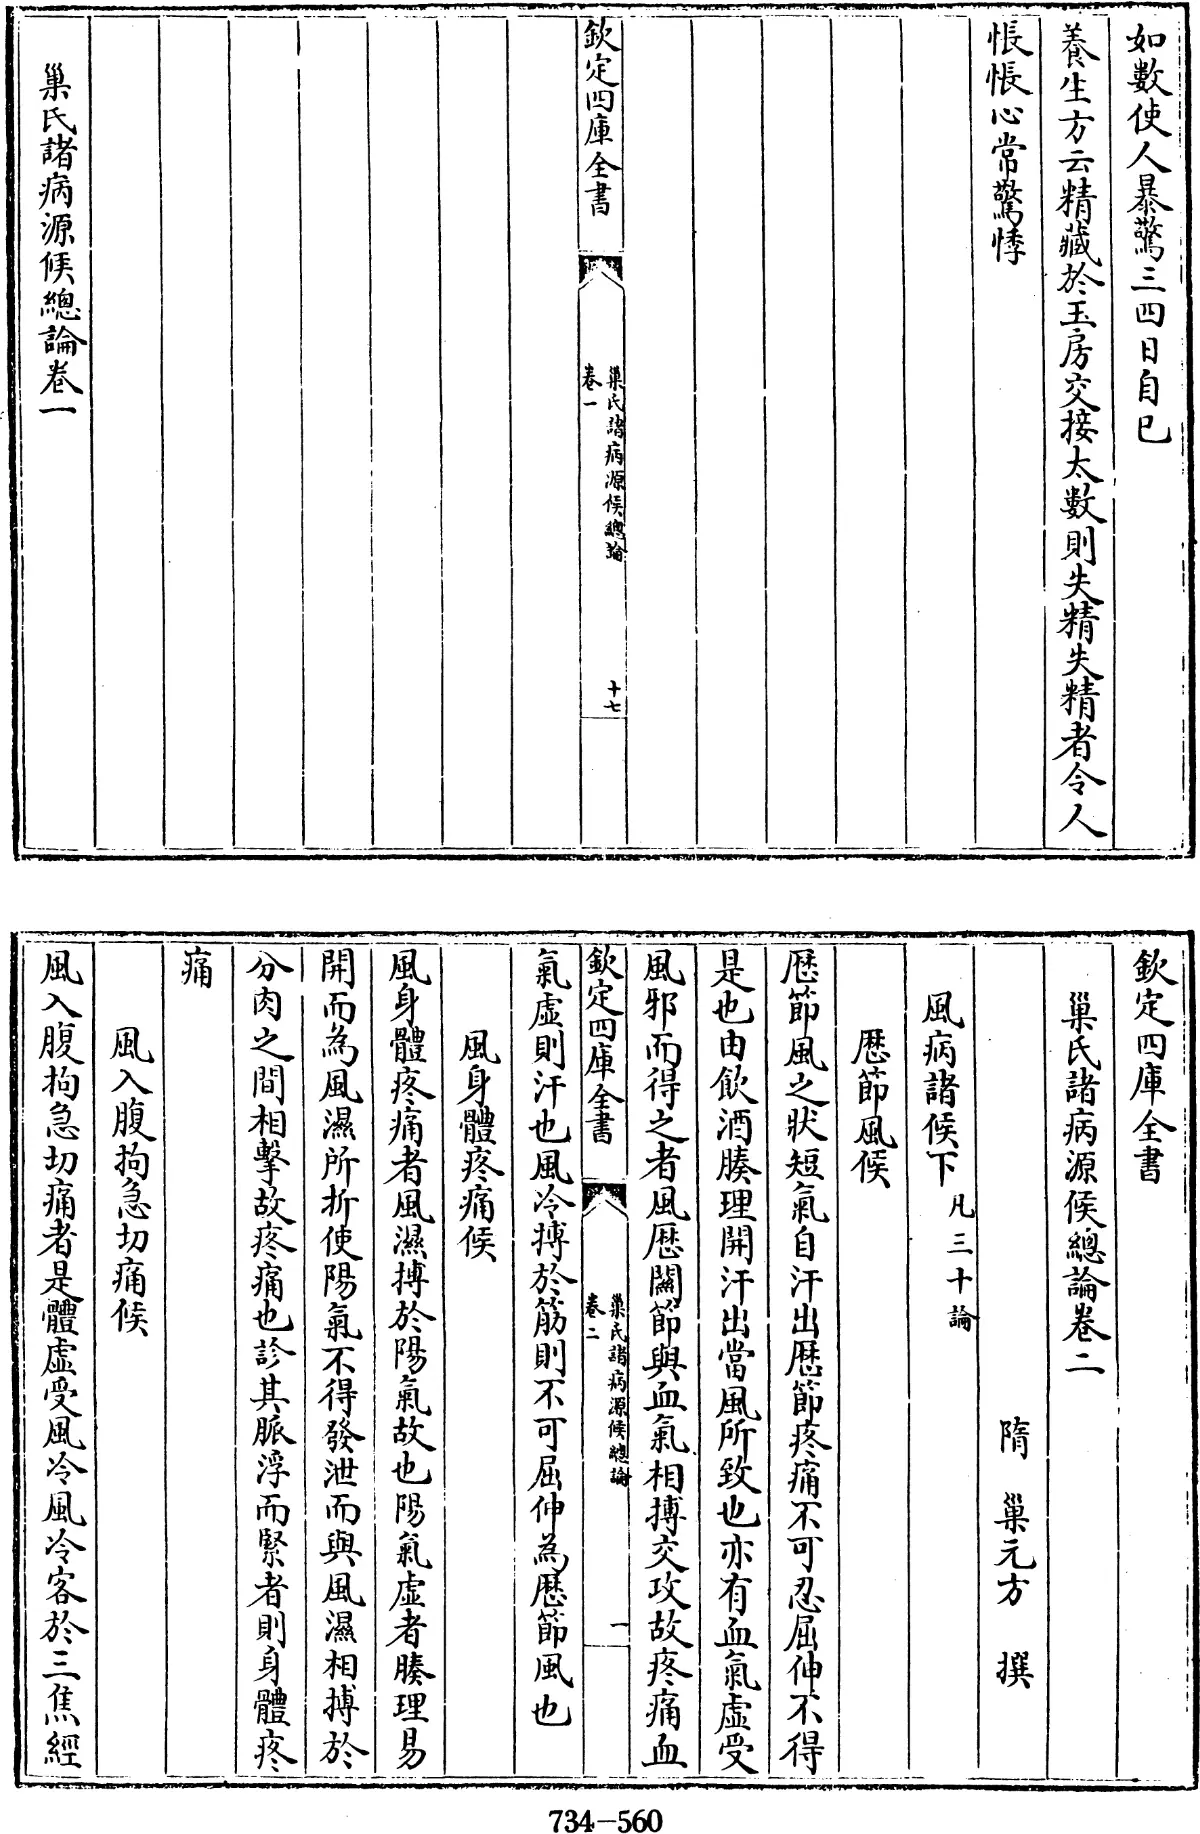 如數使人暴驚三四日自已
養生方云精藏於玉房交接太數則失精失精者令人
悵悵心常驚悸
欽定四庫全書
巢氏諸病源候總論
卷一
十七
巢氏諸病源候總論卷一
欽定四庫全書
巢氏諸病源候總論卷二
隋 巢元方 撰
風病諸候下 凡三十論
歴節風候
歴節風之狀短氣自汗出歴節疼痛不可忍屈伸不得
是也由飲酒腠理開汗出當風所致也亦有血氣虛受
風邪而得之者風歴關節與血氣相搏交攻故疼痛血
欽定四庫全書
巢氏諸病源候總論
卷二
一
氣虛則汗也風冷搏於筋則不可屈伸為歴節風也
風身體疼痛候
風身體疼痛者風濕搏於陽氣故也陽氣虛者腠理易
開而為風濕所折使陽氣不得發泄而與風濕相搏於
分肉之間相擊故疼痛也診其脈浮而緊者則身體疼
痛
風入腹拘急切痛候
風入腹拘急切痛者是體虛受風冷風冷客於三焦經
734-560